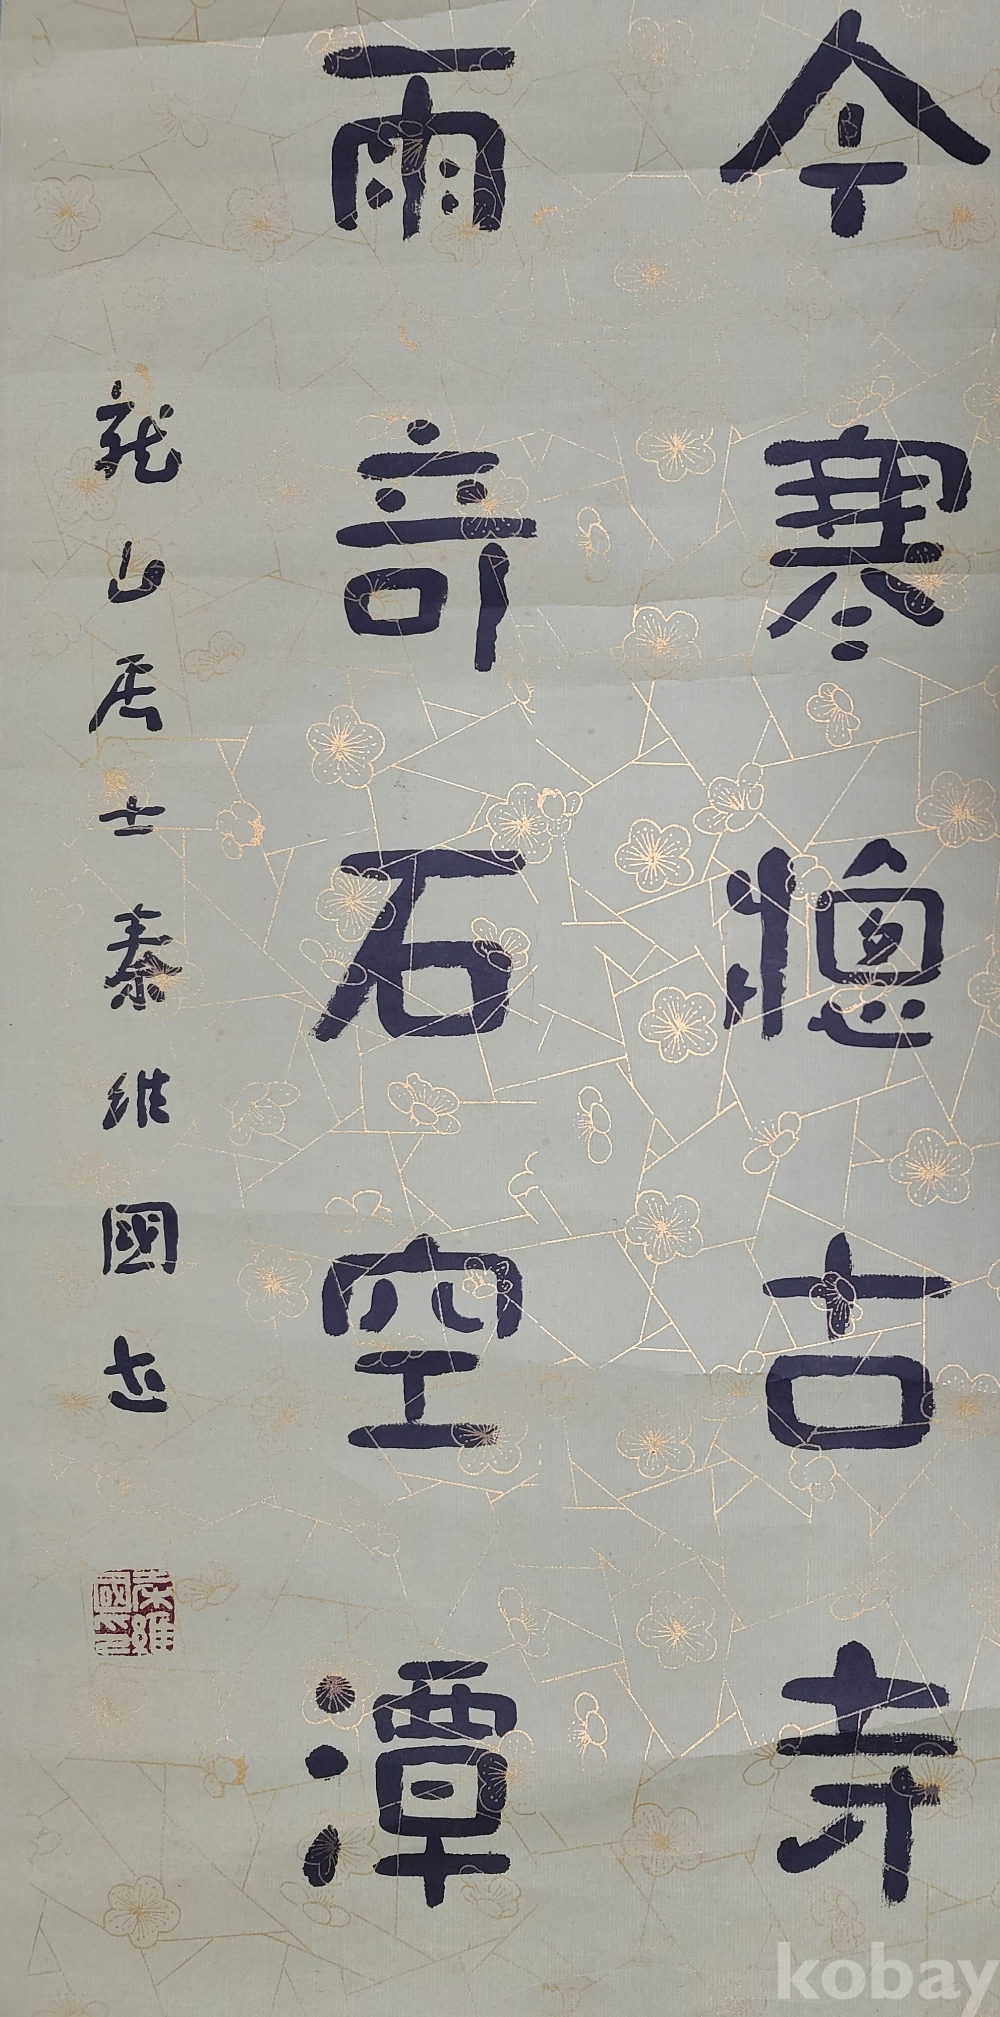 今寒牕古寺
雨竒石空潭
龍山居士秦維國
秦維國印
kobay